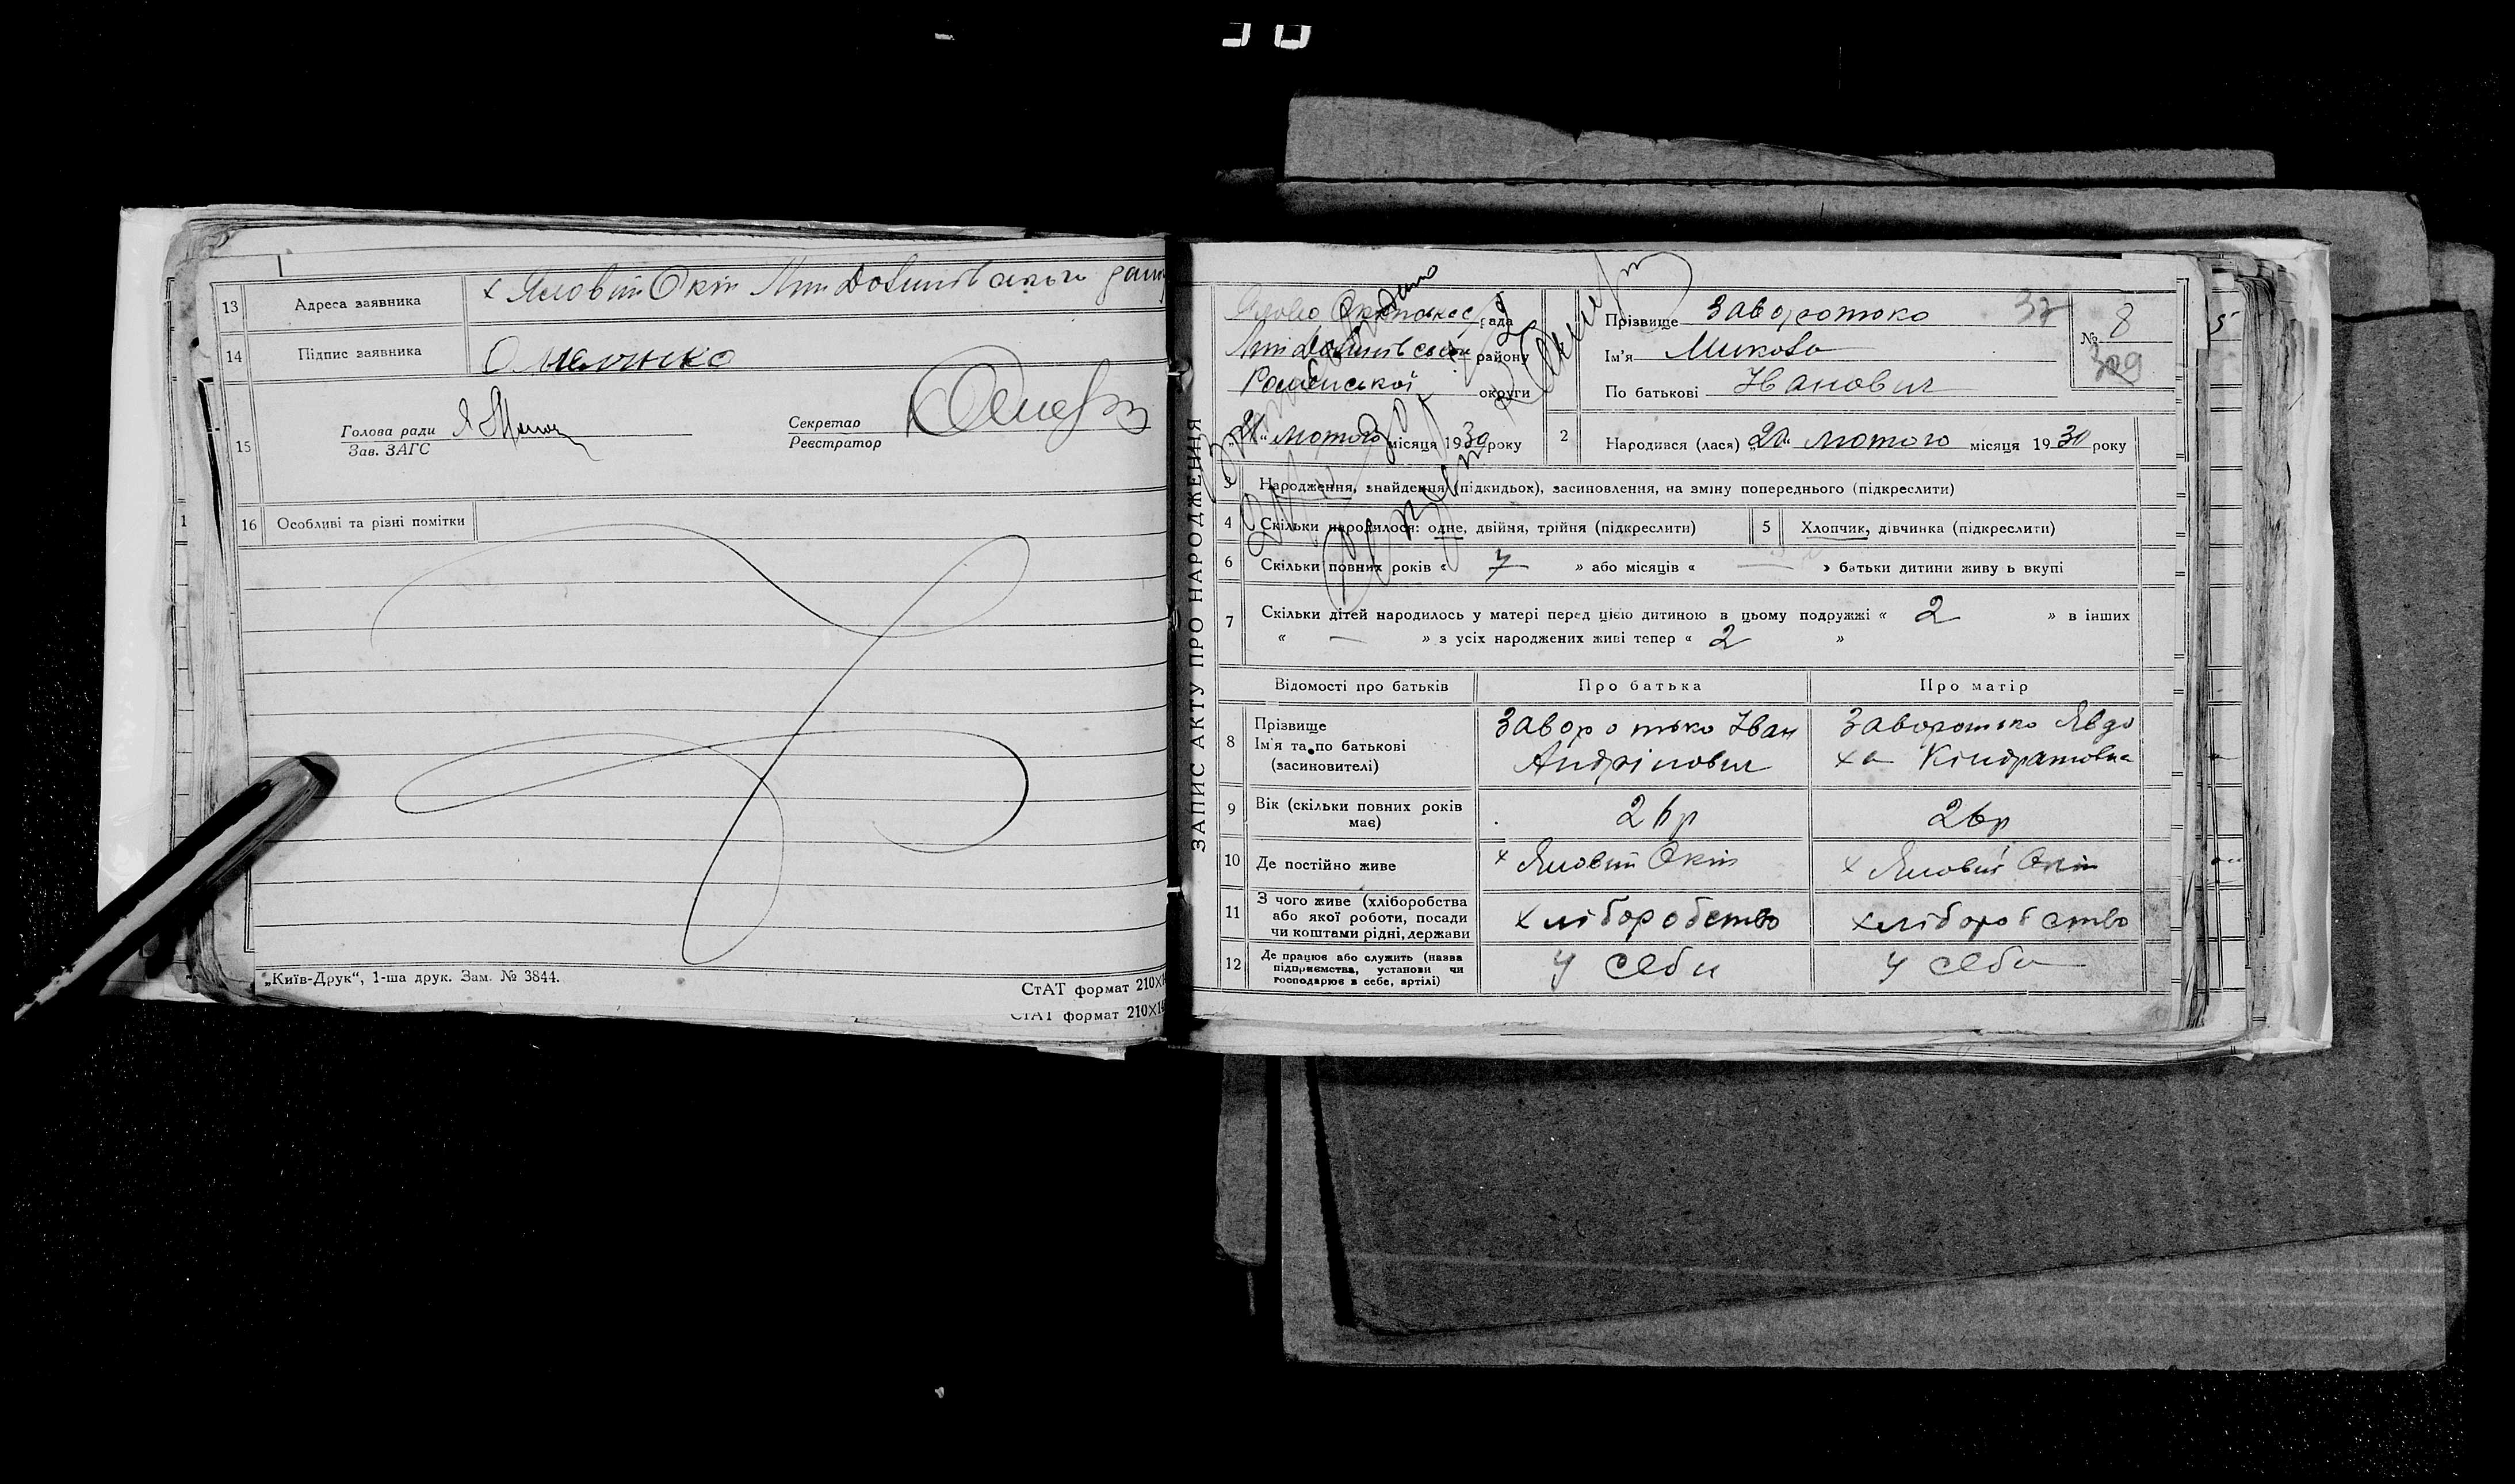 13 Адреса заявника х Яловий Окіп Лип Довгинівського
14 Підпис заявника Омелянко
15 Голова ради
Зав. ЗАГС
Секретар
Реєстратор
16 Особливі та різні помітки
„Київ-Друк“, 1-ша друк. Зам. № 3844.
СтАТ формат 210×14
СтАТ формат 210×14
ЗАПИС АКТУ ПРО НАРОДЖЕННЯ
рада
району
Роменської округи
21 „ лютого місяця 1930 року
Прізвище Заворотько 37
№ 8
309
Ім'я Микола
По батькові Іванович
2 Народився (лася) „20“ лютого місяця 1930 року
3 Народження, знайдення (підкидьок), засиновлення, на зміну попереднього (підкреслити)
4 Скільки народилося: одне, двійня, трійня (підкреслити) 5 Хлопчик, дівчинка (підкреслити)
6 Скільки повних років « 7 » або місяців « — » батьки дитини живуь вкупі
7 Скільки дітей народилось у матері перед цією дитиною в цьому подружжі « 2 » в інших
« — » з усіх народжених живі тепер « 2 »
Відомості про батьків Про батька Про матір
8 Прізвище
Ім'я та по батькові
(засиновителі)
Заворотько Іван
Андрійович
Заворотько Явдо
ха Кіндратовна
9 Вік (скільки повних років
має)
26р 26р
10 Де постійно живе х Яловий Окіп х Яловий Окіп
11 З чого живе (хліборобства
або якої роботи, посади
чи коштами рідні, держави
хліборобство хліборобство
12 Де працює або служить (назва
підприємства, установи чи
господарює в себе, артілі)
у себи у себе